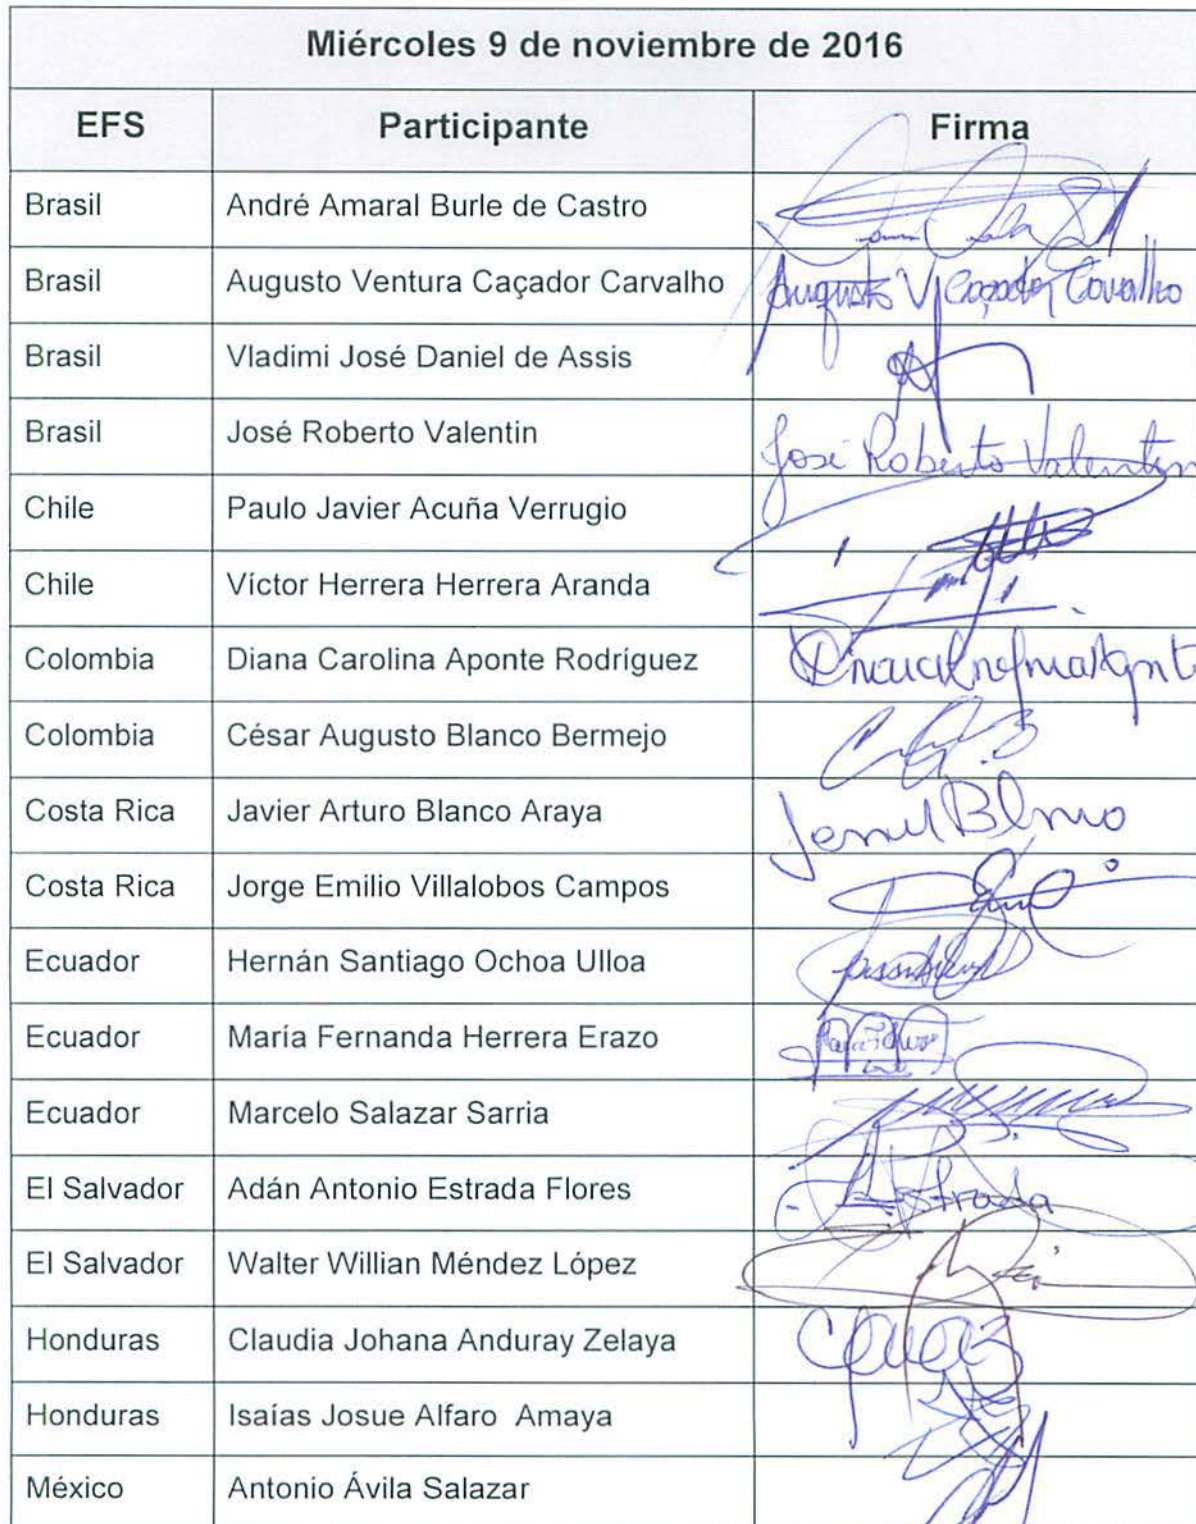 Miércoles 9 de noviembre de 2016
EFS Participante Firma
Brasil André Amaral Burle de Castro
Brasil Augusto Ventura Caçador Carvalho Augusto V Caçador Carvalho
Brasil Vladimi José Daniel de Assis
Brasil José Roberto Valentin José Roberto Valentin
Chile Paulo Javier Acuña Verrugio
Chile Víctor Herrera Herrera Aranda
Colombia Diana Carolina Aponte Rodríguez
Colombia César Augusto Blanco Bermejo
Costa Rica Javier Arturo Blanco Araya
Costa Rica Jorge Emilio Villalobos Campos
Ecuador Hernán Santiago Ochoa Ulloa
Ecuador María Fernanda Herrera Erazo
Ecuador Marcelo Salazar Sarria
El Salvador Adán Antonio Estrada Flores
El Salvador Walter Willian Méndez López
Honduras Claudia Johana Anduray Zelaya
Honduras Isaías Josue Alfaro Amaya
México Antonio Ávila Salazar